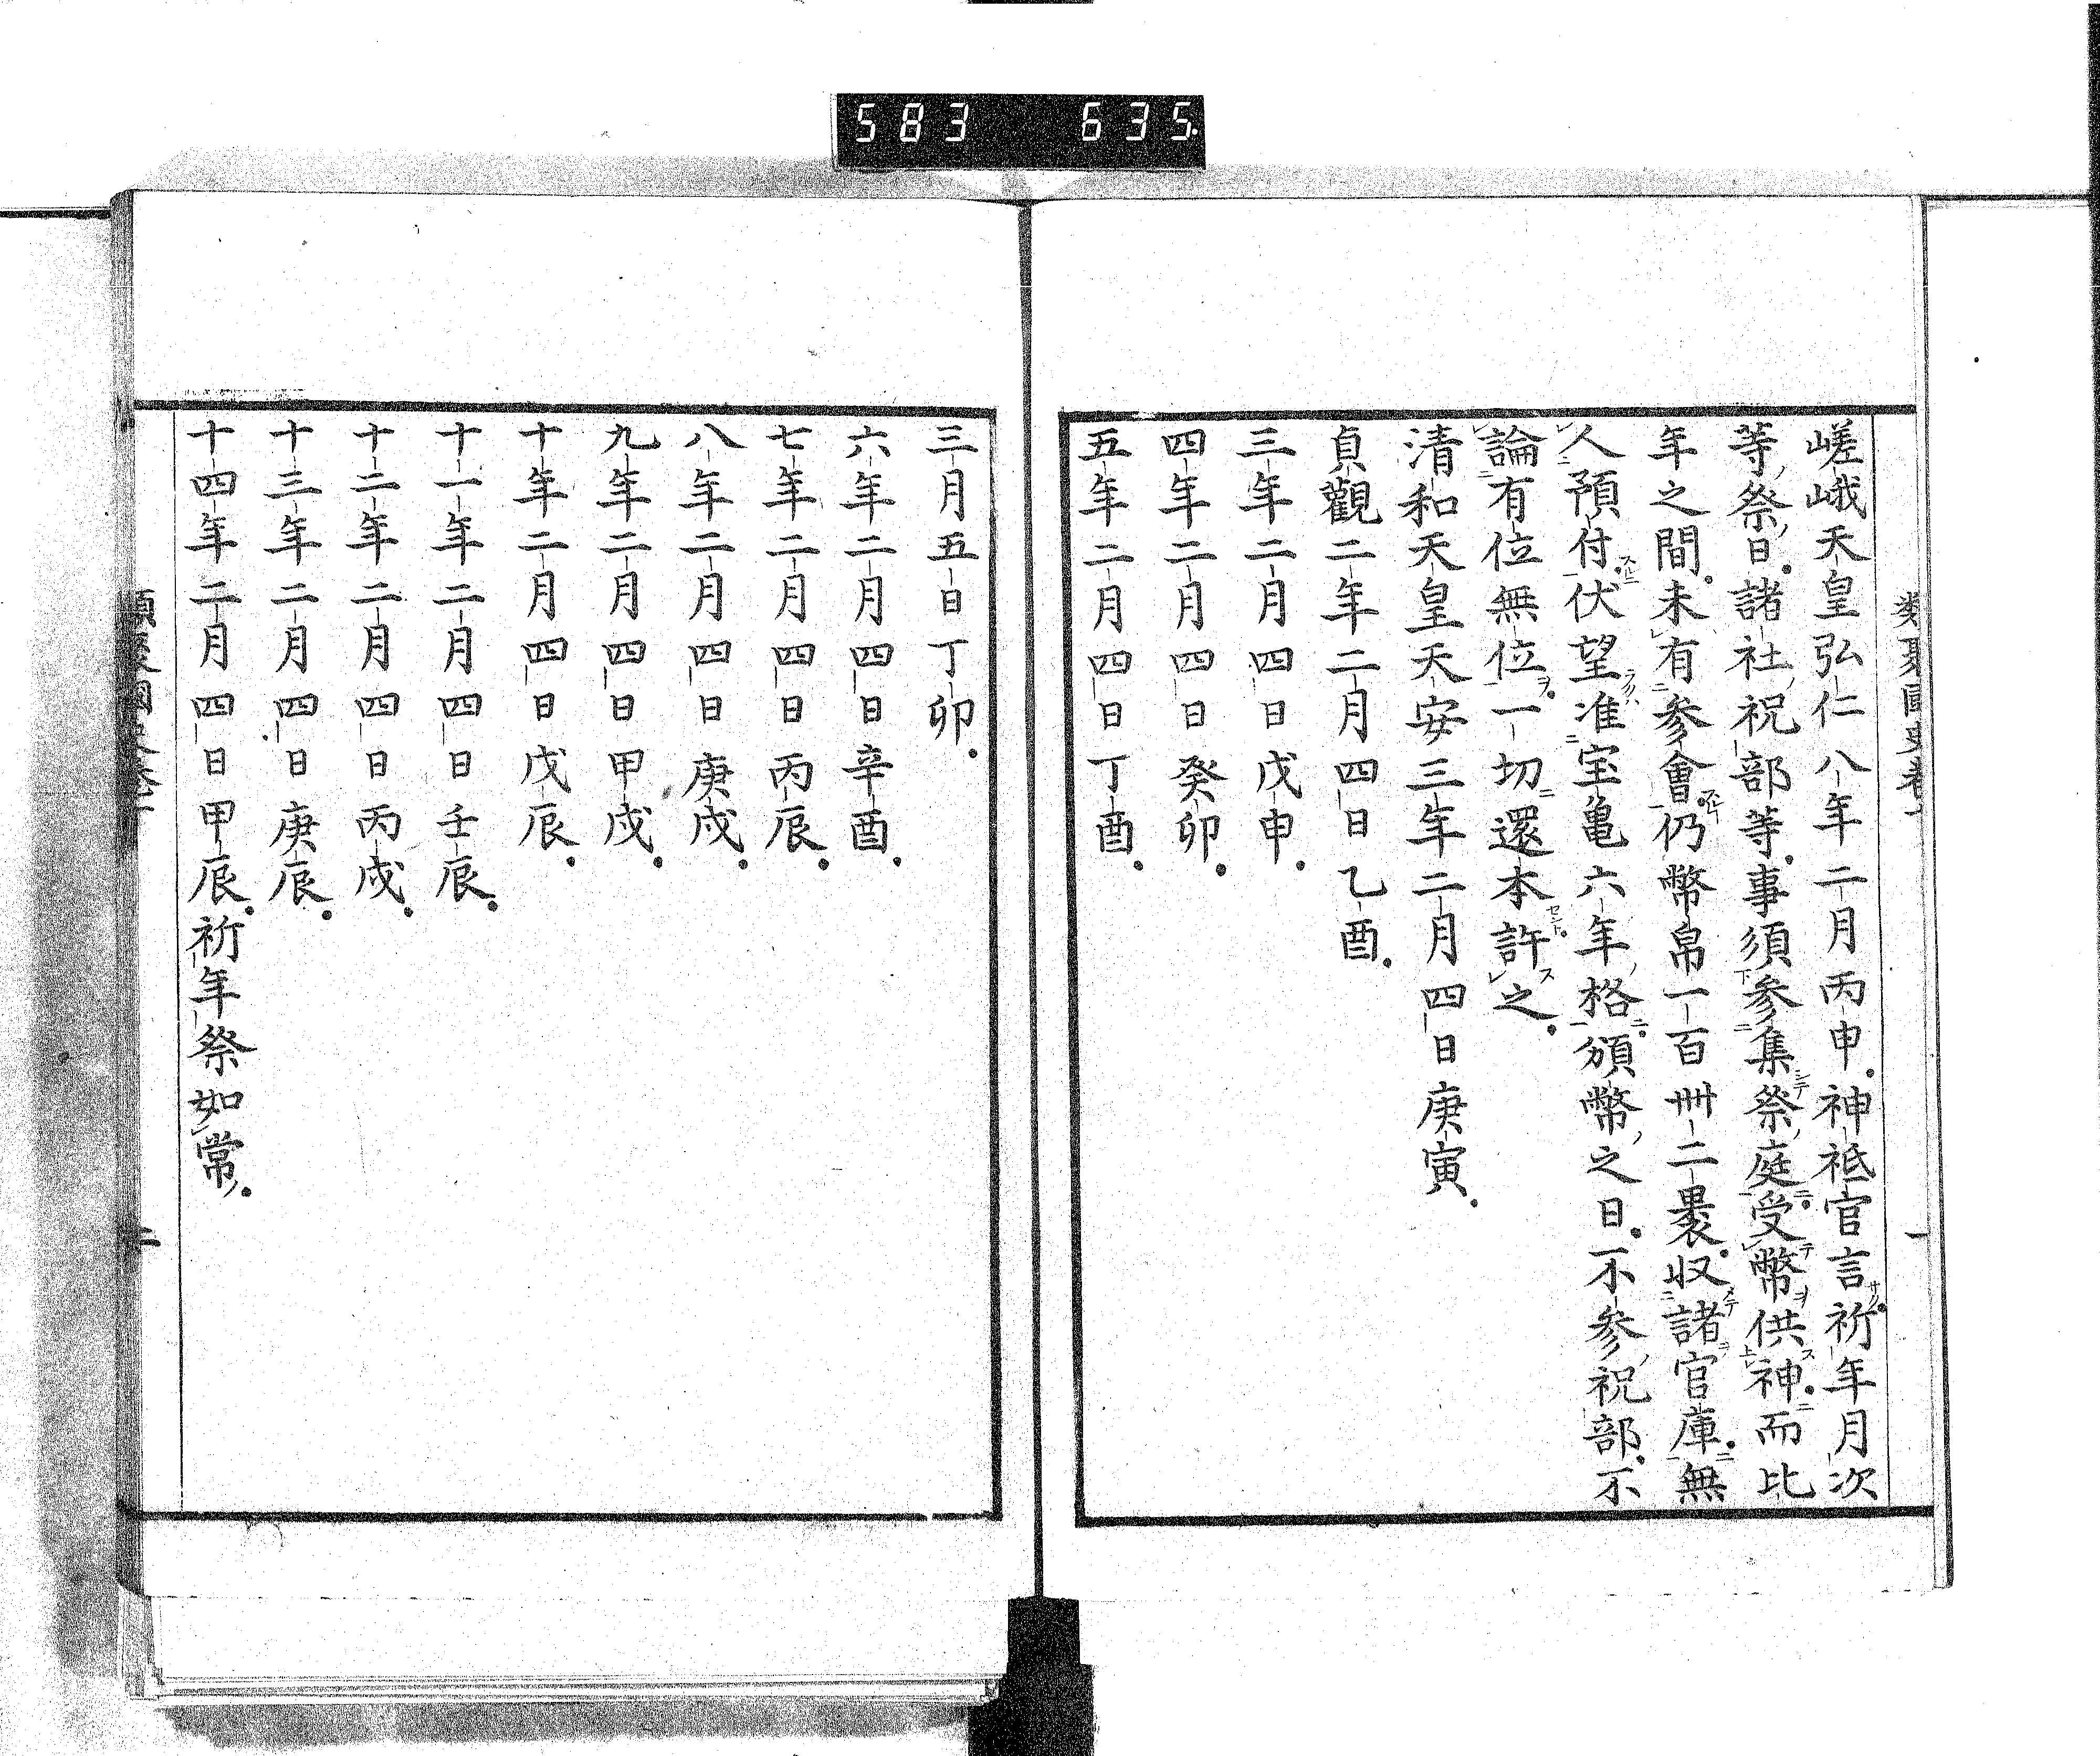 583 635
嵯峨天皇弘仁八年二月丙申。神祇官言。祈年月次
等祭日。諸社祝部等。事須参集祭庭。受幣供神。而比
年之間。未有参會。仍幣帛一百卌二褁。収諸官庫。無
人預付。伏望准宝亀六年格。頒幣之日。不参祝部。不
論有位無位。一切還本。許之。
清和天皇天安三年二月四日庚寅。
貞觀二年二月四日乙酉。
三年二月四日戊申。
四年二月四日癸卯。
五年二月四日丁酉。
三月五日丁卯。
六年二月四日辛酉。
七年二月四日丙辰。
八年二月四日庚戌。
九年二月四日甲戌。
十年二月四日戊辰。
十一年二月四日壬辰。
十二年二月四日丙戌。
十三年二月四日庚辰。
十四年二月四日甲辰。祈年祭如常。
二